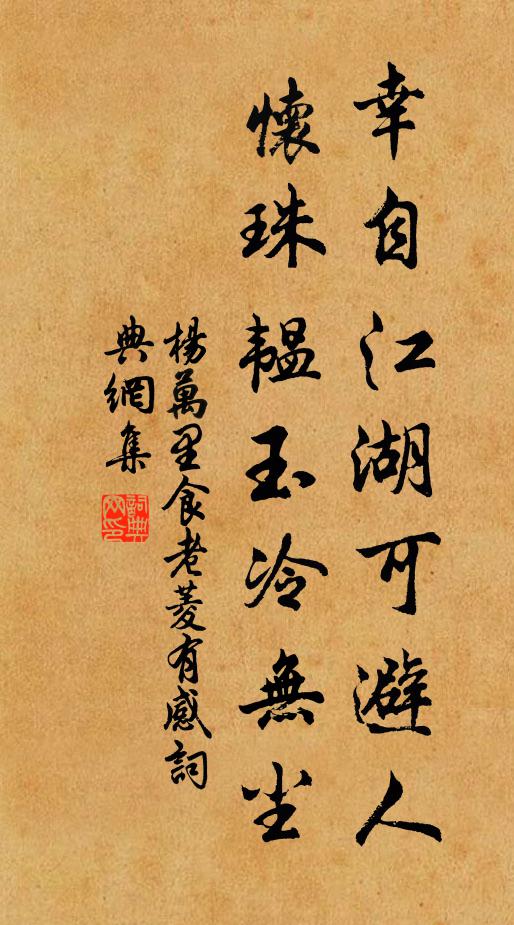 幸自江湖可避人
懷珠韞玉冷無尘
楊萬里食老菱有感詞
典網集
詞典網印